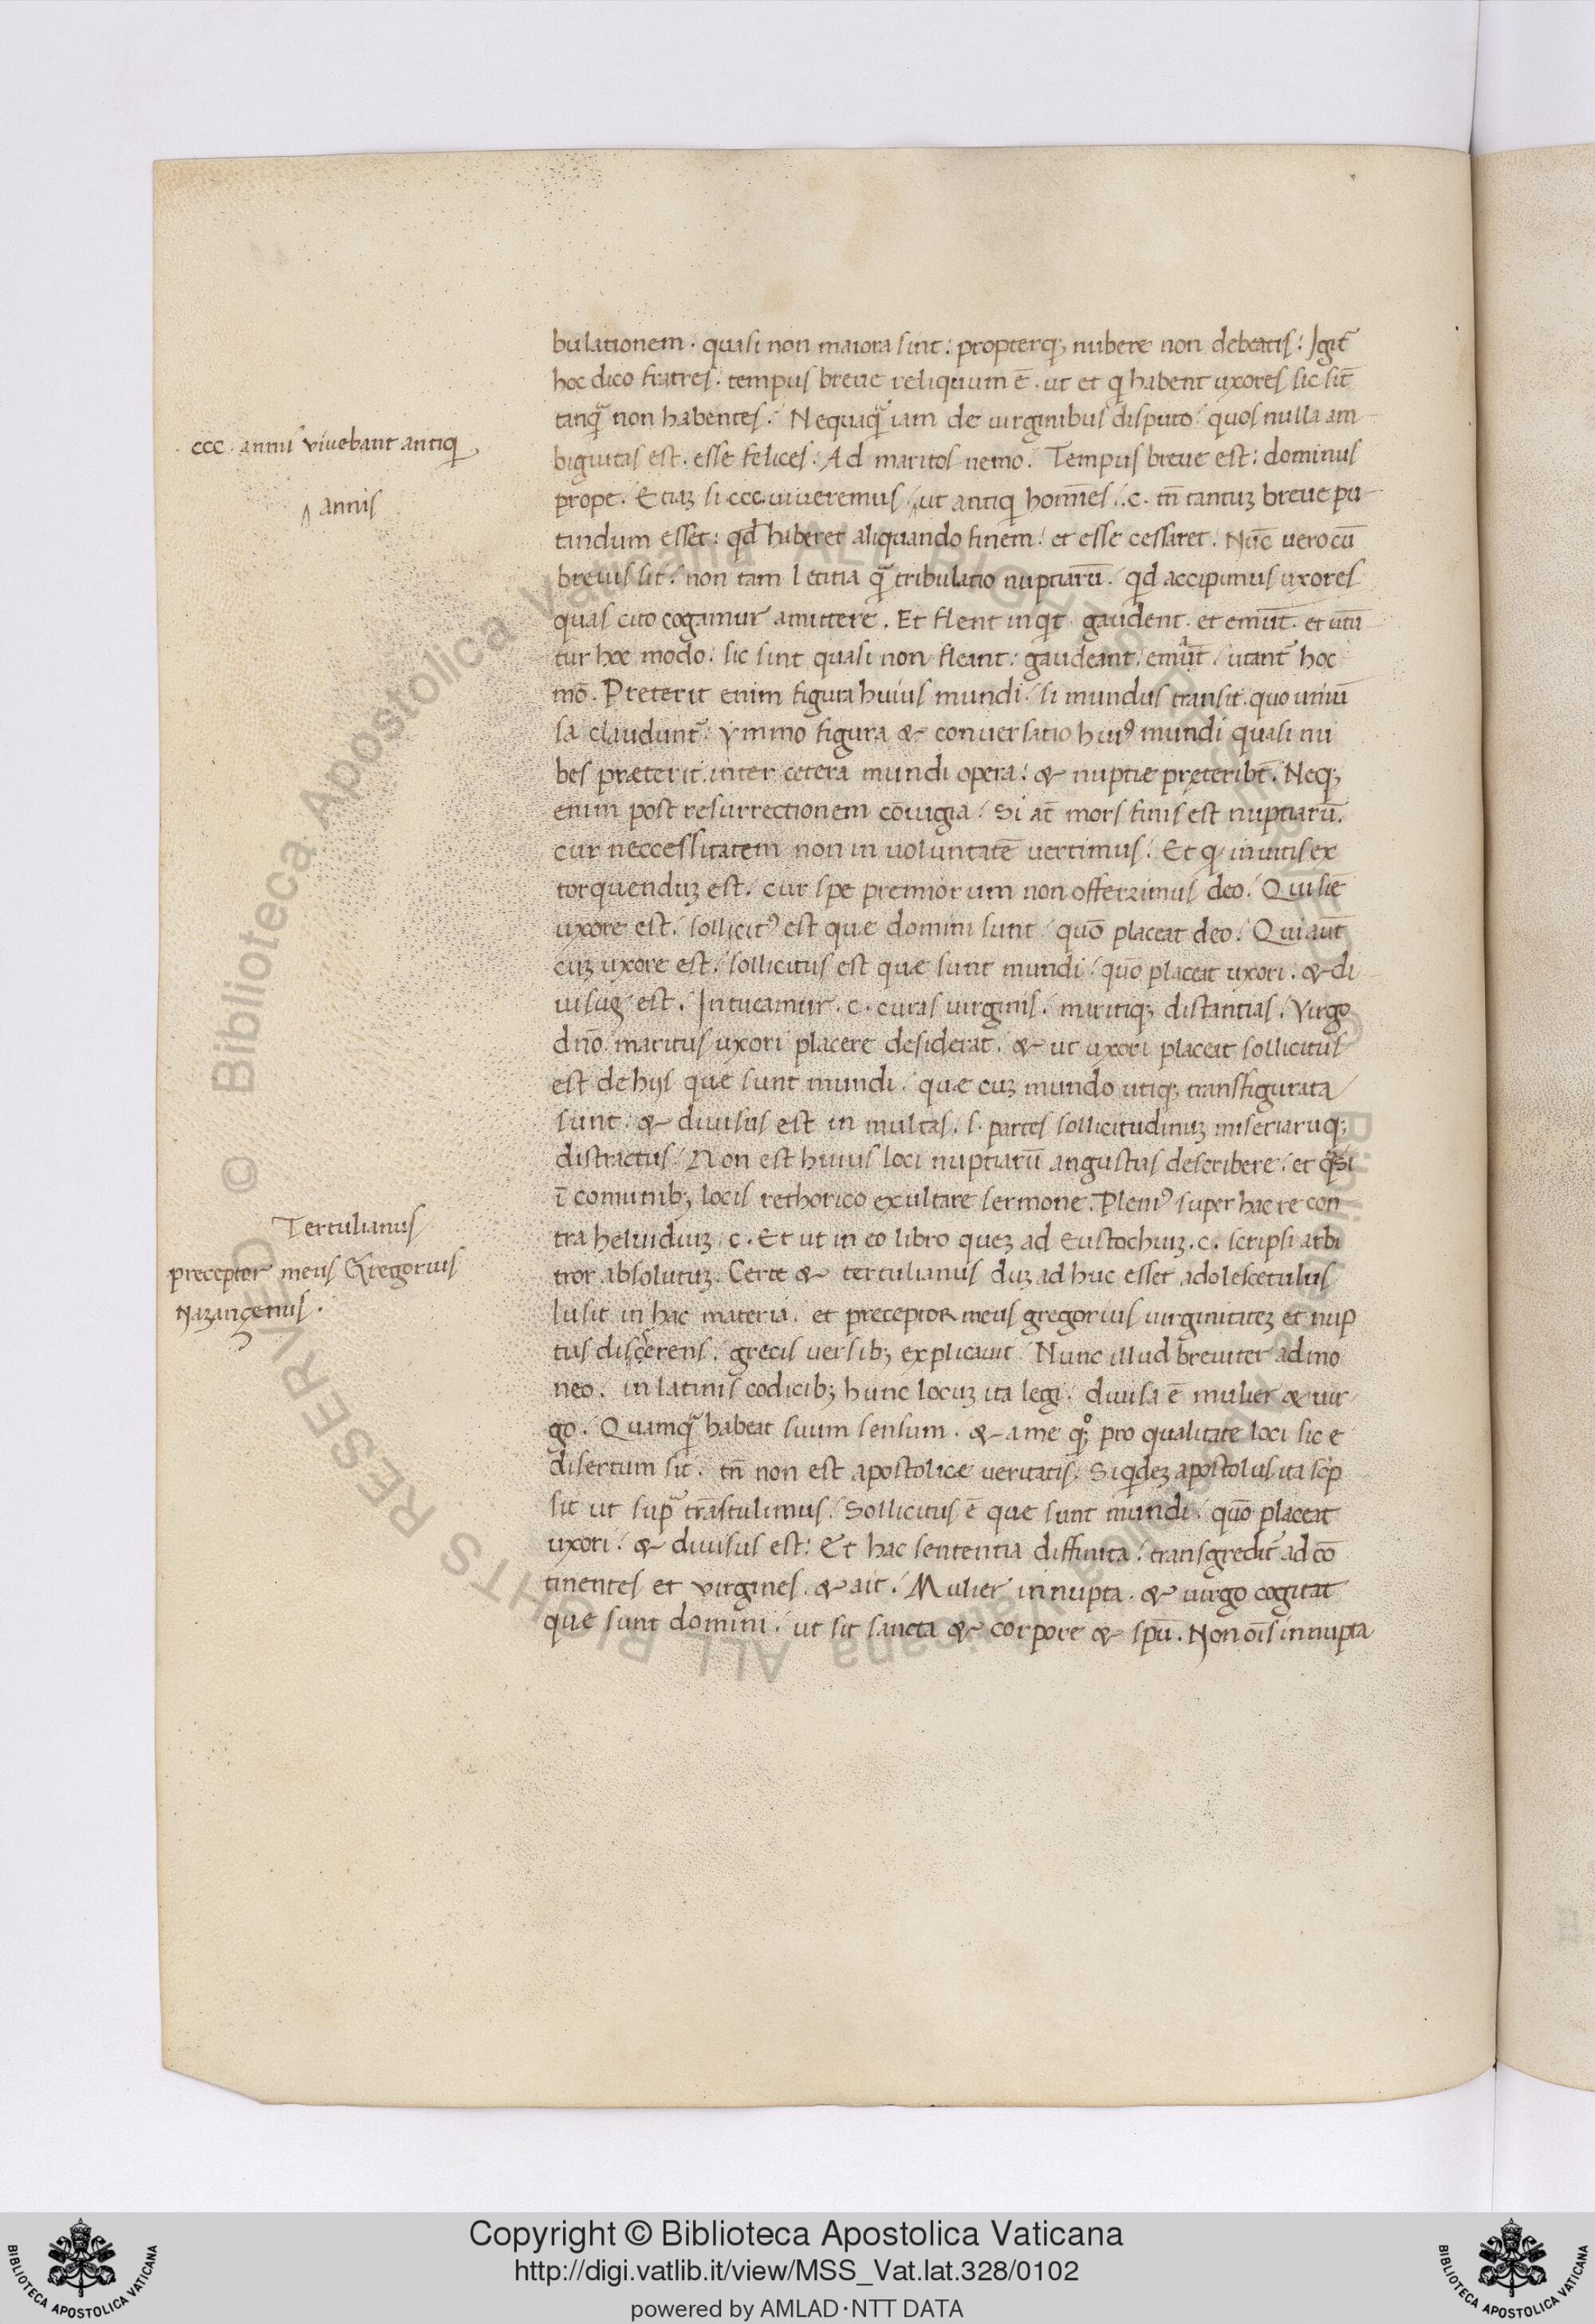 bulationem. quasi non maiora sint: propterq; nubere non debeatis: Igit̃
hoc dico fratres. tempus breue reliquum ē. ut et q habent uxores sic sit̄
tanq̃ non habentes. Nequaq̃ iam de uirginibus disputo quos nulla am
biguitas est. esse felices. Ad maritos uenio. Tempus breue est: dominus
ccc. annis vivebant antiq
prope. Etiaꝫ si .ccc. uiueremus ut antiq homīes .c. tn̄ tantuꝫ breue pu
^ annis
tandum esset: qd haberet aliquando finem. et esse cessaret. Nūc uero cū
breuis sit. non tam letitia q̃ tribulatio nuptiarū. qd accipimus uxores
quas cito cogamur amittere. Et flent inqt gaudent. et emūt. et utū
tur hoc modo. sic sint quasi non fleant: gaudeant. emāt utant̃ hoc
mō. Preterit enim figura huius mundi si mundus transit. quo uniũ
sa claudunt̃: ymmo figura & conuersatio huiꝰ mundi quasi nu
bes præterit. inter cetera mundi opera: & nuptiæ pręteribt̄. Neq;
enim post resurrectionem cōiugia. Si at̄ mors finis est nuptiarū.
cur neccessitatem non in uoluntatē vertimus. Et q inuitis ex
torquenduꝫ est. cur spe premiorum non offerrimus deo. Qui siē
uxore est. sollicitꝰ est quæ domini sunt quō placeat deo. Qui aut̄
cuꝫ uxore est. sollicitus est quæ sunt mundi quo placeat uxori. & di
uisus est. Intueamur .c. curas uirginis. maritiq; distantias. Virgo
dn̄o maritus uxori placere desiderat. & ut uxori placeat sollicitus
est de hijs quæ sunt mundi. quæ cuꝫ mundo utiq; transfigurata
sunt. & diuisus est in multas .s. partes sollicitudinuꝫ miseriaruq;
distractus. Non est huius loci nuptiarū angustias describere. et q̃si
ī comunib; locis rethorico exultare sermone. Pleniꝰ super hac re con
tra heluidiuꝫ .c. Et ut in eo libro queꝫ ad Eustochiuꝫ .c. scripsi arbi
Tertulianus
tror absolutuꝫ. Certe & tertulianus duꝫ ad huc esset adolescētulus
preceptor meus Gregorius
Nazanzenus.
lusit in hac materia. et preceptor meus gregorius uirginitateꝫ et nup
tias disserens. grecis uersib; explicauit Nunc illud breuiter admo
neo. in latinis codicib; hunc locuꝫ ita legi. diuisa ē mulier & uir
go. Quamq̃ habeat suum sensum. & a me qͦ; pro qualitate loci sic e
disertum sit. tn̄ non est apostolicæ veritatis. Siqdeꝫ apostolus ita scp̄
sit ut sup̃ trāstulimus. Sollicitus ē quæ sunt mundi. quō placeat
uxori. & diuisus est: Et hac sententia diffinita. transgredit̃ ad cō
tinentes et virgines. & ait. Mulier innupta. & uirgo cogitat
que sunt domini. ut sit sancta & corpore & spū. Non oīs innupta
© Biblioteca Apostolica Vaticana ALL RIGHTS RESERVED
Copyright © Biblioteca Apostolica Vaticana
http://digi.vatlib.it/view/MSS_Vat.lat.328/0102
powered by AMLAD·NTT DATA
BIBLIOTECA APOSTOLICA VATICANA
BIBLIOTECA APOSTOLICA VATICANA